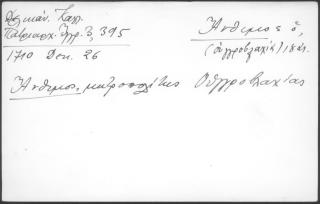 Δελικάν. Καλλ.
Πατριαρχ. Ἔγγρ. 3, 395
1710 Dec. 26
Ἄνθιμος ὁ,
(οὐγγροβλαχία) 18 αἰ.
Ἄνθιμος, μητροπολίτης Οὐγγροβλαχίας